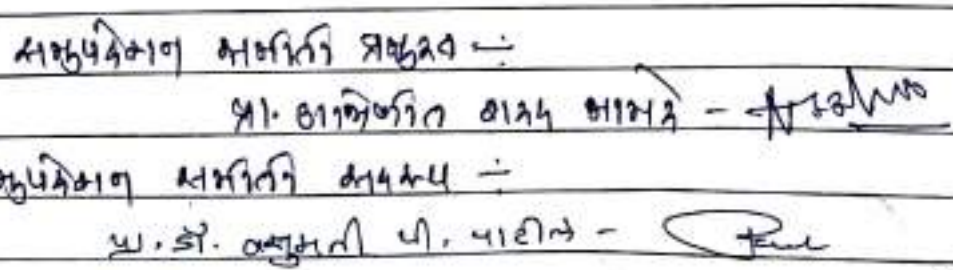 समुपदेशन समिती प्रमुख :-
प्रा. शरद -
समुपदेशन समिती सदस्य :-
प्रा. डॉ. वसुमती पी. पाटील -